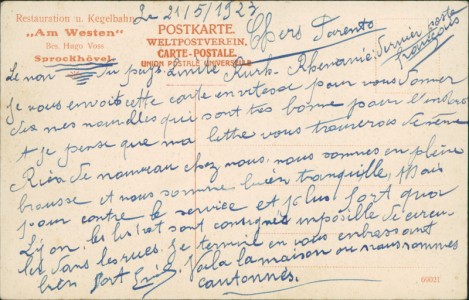 Restauration u. Kegelbahn
"Am Westen"
Bes. Hugo Voss
Sprockhövel.
POSTKARTE.
WELTPOSTVEREIN.
CARTE-POSTALE.
UNION POSTALE UNIVERSELLE
Le 21/5/1923
Chers Parents
Dernier poste
français
Le nom du pays limite Ruhr-Rhénanie
Je vous envoit cette carte en vitesse pour vous donner
des mes nouvelles qui sont très bonne pour l'endroit
et je pense que ma lettre vous trouverois de même
Rien de nouveau chez nous, nous sommes en pleine
brousse et nous somme bien tranquille, Mais
pour contre le service et plus fort qu'a
Lyon. les sont consignée imposible de circu
ler dans les rues. Je termine en vous embrassant
bien fort Voila la maison ou nous sommes
cantonnés.
60021